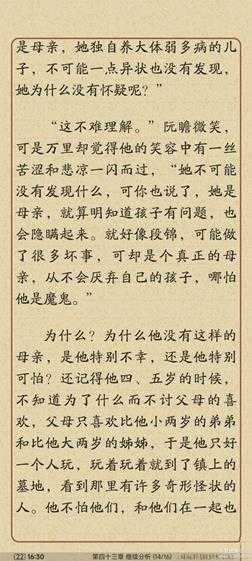 是母亲，她独自养大体弱多病的儿
子，不可能一点异状也没有发现，
她为什么没有怀疑呢？”
“这不难理解。”阮瞻微笑，
可是万里却觉得他的笑容中有一丝
苦涩和悲凉一闪而过，“她不可能
没有发现什么，可你也说了，她是
母亲，就算明知道孩子有问题，也
会隐瞒起来。就好像段锦，可能做
了很多坏事，可却是个真正的母
亲，从不会厌弃自己的孩子，哪怕
他是魔鬼。”
为什么？为什么他没有这样的
母亲，是他特别不幸，还是他特别
可怕？还记得他四、五岁的时候，
不知道为了什么而不讨父母的喜
欢，父母只喜欢比他小两岁的弟弟
和比他大两岁的姊姊，于是他只好
一个人玩，玩着玩着就到了镇上的
墓地，看到那里有许多奇形怪状的
人。他不怕他们，和他们在一起也
(22) 16:30 第四十三章 继续分析 (14/16)